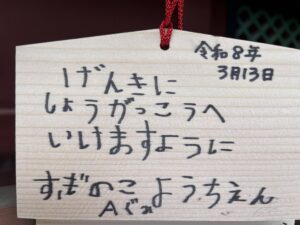 令和8年
3月13日
げんきに
しょうがっこうへ
いけますように
すぎのこようちえん
Aぐみ